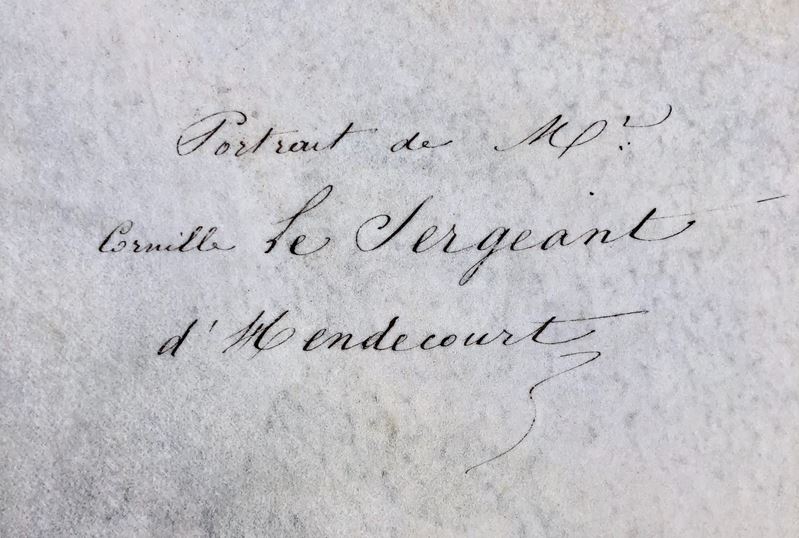 Portrait de Mr.
Cornille Le Sergeant
d'Hendecourt